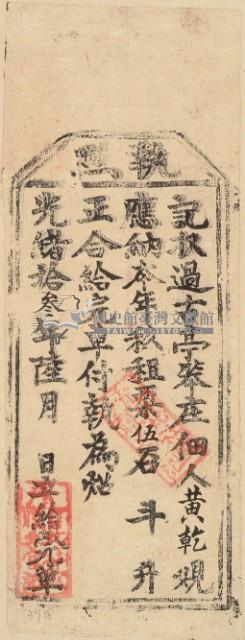 執照
記收過古亭笨庄佃人黃乾現
應納本年穀租粟伍石 斗 升
正合給完單付執為炤
光緒拾叁年陸月 日立給完單
國史館臺灣文獻館
TAIWAN HISTORICA